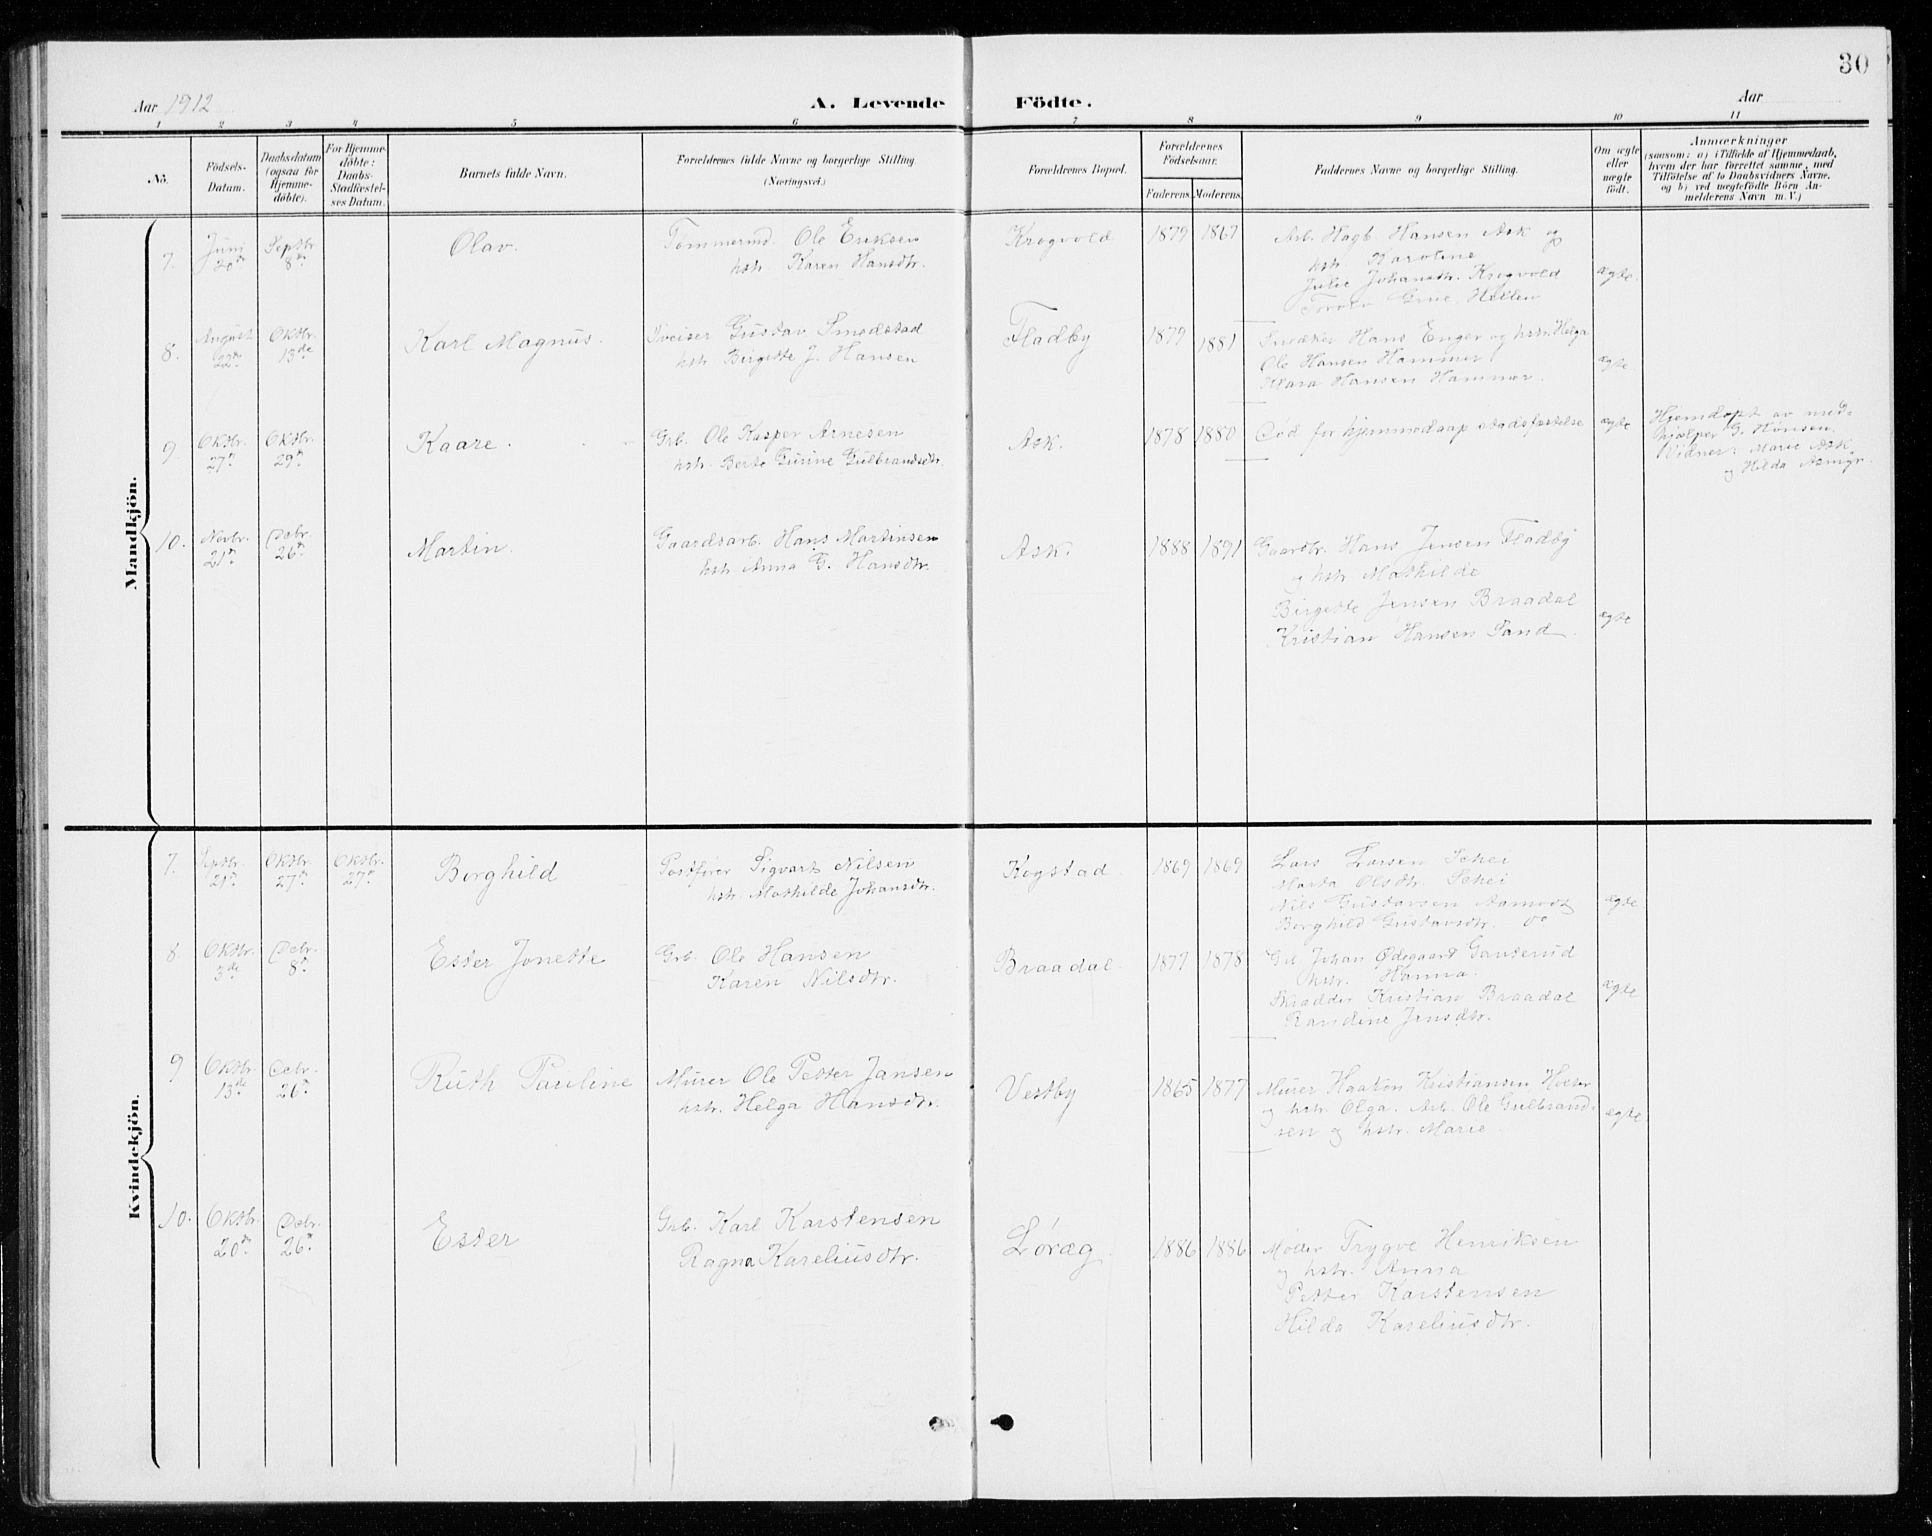 30
Aar 1912
A. Levende Födte.
Aar
1 2 3 4 5 6 7 8 9 10 11
No.
Födsels-
Datum.
Daabsdatum
(ogsaa for
Hjemme-
döbte).
For Hjemme-
döbte:
Daabs-
Stadfæstel-
ses Datum.
Barnets fulde Navn.
Forældrenes fulde Navne og borgerlige Stilling.
(Næringsvei.)
Forældrenes Bopæl.
Forældrenes
Födselsaar.
Faderens. Moderens.
Faddernes Navne og borgerlige Stilling.
Om ægte
eller
uægte
födt.
Anmærkninger
(saasom: a) i Tilfælde af Hjemmedaab,
hvem der har forrettet samme, med
Tilföielse af to Daabsvidners Navne,
og b) ved uægtefödte Börn An-
melderens Navn m. V.)
Mandkjön.
7.
Juni
20de
Septbr.
8de
Olav.
Tømmermd. Ole Eriksen
hstr. Karen Hansdtr.
Krogvold
1879 1867
Arb. Hagb. Hansen Ask og
hstr. Karoline
Julie Johansdtr. Krogvold
Grue,
ægte.
8.
August
22de
Oktbr.
13de
Karl Magnus.
Sveiser Gustav Smedstad
hstr. Birgitte J. Hansen
Fladby
1879 1881
Hans Enger og hstr. Helga
Ole Hansen Hammer
Klara Hansen Hammer.
ægte
9.
Oktbr.
27de
Oktbr.
29de
Kaare.
Grb. Ole Kasper Arnesen
hstr. Berte Gurine Gulbrandsdtr.
Ask.
1878 1880
Død før hjemmedaap stadsfæstelse
ægte
Hjemdøpt av med-
hjælper G. Hansen.
Vidner: Marie Ask
og Hilda
10.
Novbr.
21de
Debr.
26de
Martin.
Gaardsarb. Hans Martinsen
hstr. Anna G. Hansdtr.
Ask.
1888 1891
Gaardbr. Hans Jensen Fladby
og hstr Mathilde
Birgitte Jensen Braadal
Kristian Hansen Sand.
ægte
Kvindekjön.
7.
Septbr.
21de
Oktbr.
27de
Oktbr.
27de
Borghild
Postfører Sigvart Nilsen
hstr. Mathilde Johansdtr.
Kogstad
1869 1869
Lars Larsen Schei
Marta Olsdtr. Schei
Nils Gustavsen
Borghild Gustavsdtr. do
ægte
8.
Oktbr.
3de
Debr.
8de
Ester Jonette
Grb. Ole Hansen
Karen Nilsdtr.
Braadal.
1877 1878
Johan Ødegaard
hstr. Hanna.
Skrædder Kristian Braadal
Randine Jensdtr.
ægte
9
Oktbr.
13de
Debr.
26de
Ruth Pauline
Murer Ole Petter Jansen
hstr. Helga Hansdtr.
Vestby
1865 1877
Murer Haakon Kristiansen Holter
og hstr. Olga. Arb. Ole Gulbrand-
sen og hstr. Marie.
ægte.
10.
Oktbr.
20de
Debr.
26de
Ester
Grb. Karl Karstensen
Ragna Kareliusdtr.
Løræg.
1886 1886
Møller Trygve Henriksen
og hstr. Anna
Petter Karstensen
Hilda Kareliusdtr.